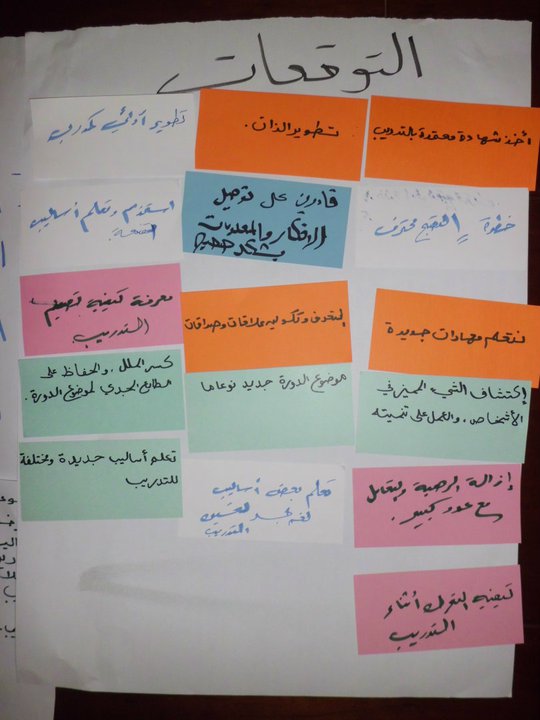 التوقعات
أخذ شهادة معتمدة بالتدريب
تطوير الذات.
تطوير أدائي كمدرب
خطوة لأصبح محترف
قادرين على توصيل
الأفكار والمعلومات
بشكل صحيح
استخدام وتعلم أساليب
نتعلم مهارات جديدة
التعرف وتكوين علاقات وصداقات
معرفة كيفية تصميم
التدريب
إكتشاف الشي المميز في
الأشخاص، والعمل على تنميته
موضوع الدورة جديد نوعا ما
كسر الملل، والحفاظ على
الطابع الجدي لموضوع الدورة.
إزالة الرهبة والتعامل
مع عدد كبير.
تعلم بعض أساليب
التدريب
تعلم أساليب جديدة ومختلفة
للتدريب
كيفية التحرك أثناء
التدريب